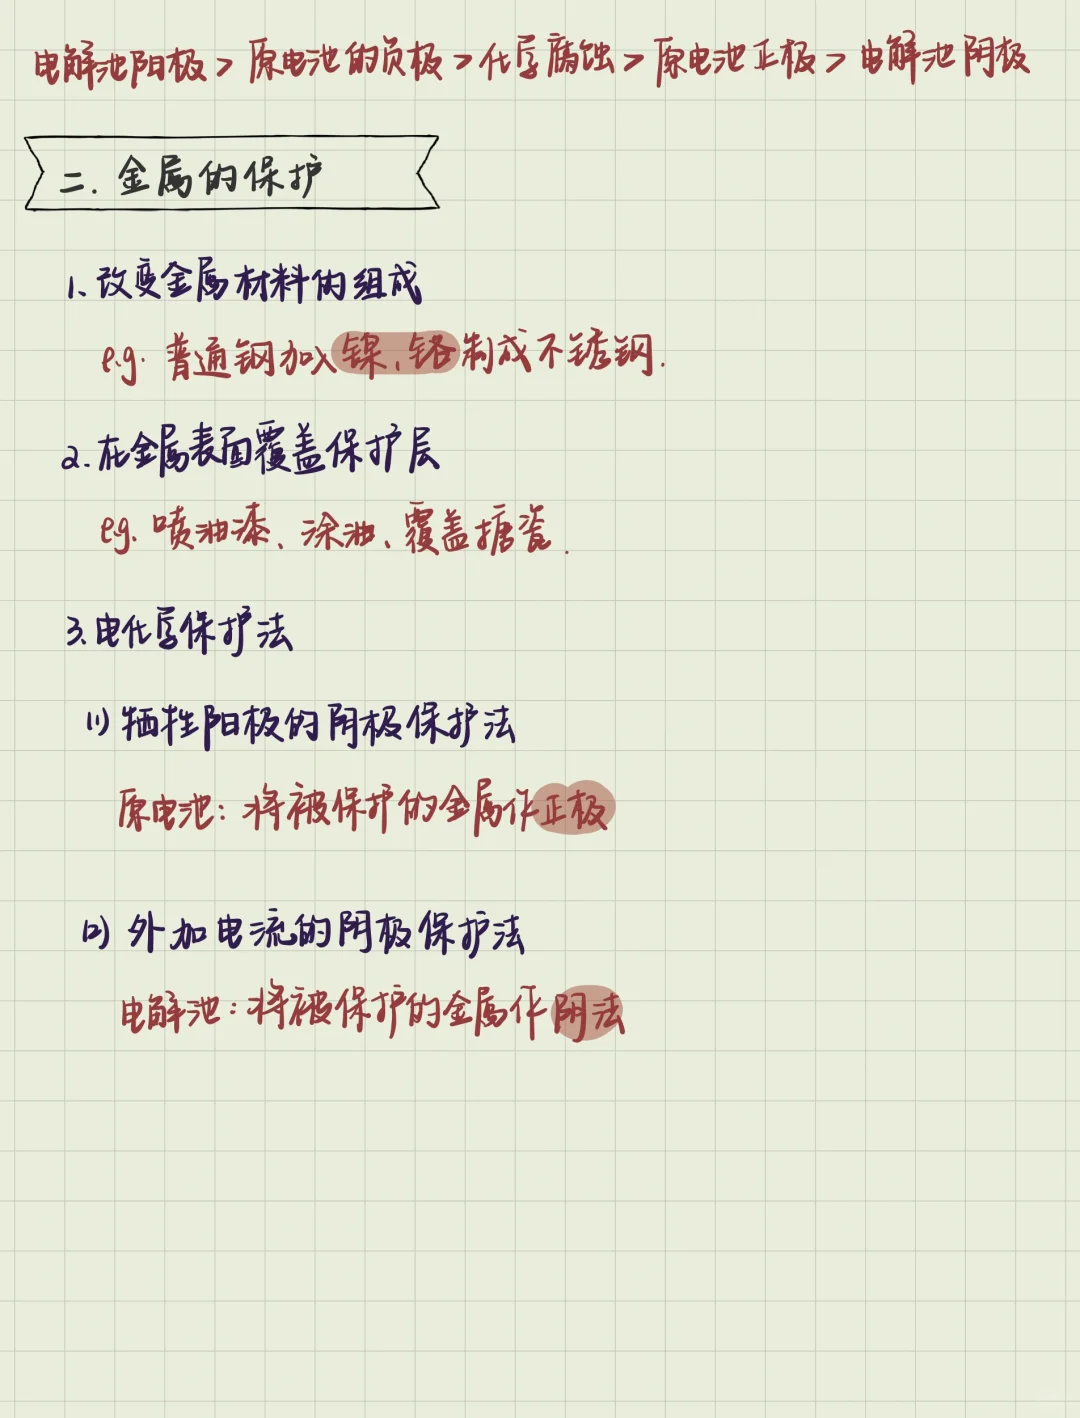 电解池阳极>原电池的负极>化学腐蚀>原电池正极>电解池阴极
二.金属的保护
1、改变金属材料的组成
e.g. 普通钢加入镍、铬制成不锈钢.
2.在金属表面覆盖保护层
eg. 喷油漆、涂油、覆盖搪瓷.
3.电化学保护法
(1) 牺牲阳极的阴极保护法
原电池:将被保护的金属作正极
(2) 外加电流的阴极保护法
电解池:将被保护的金属作阴法